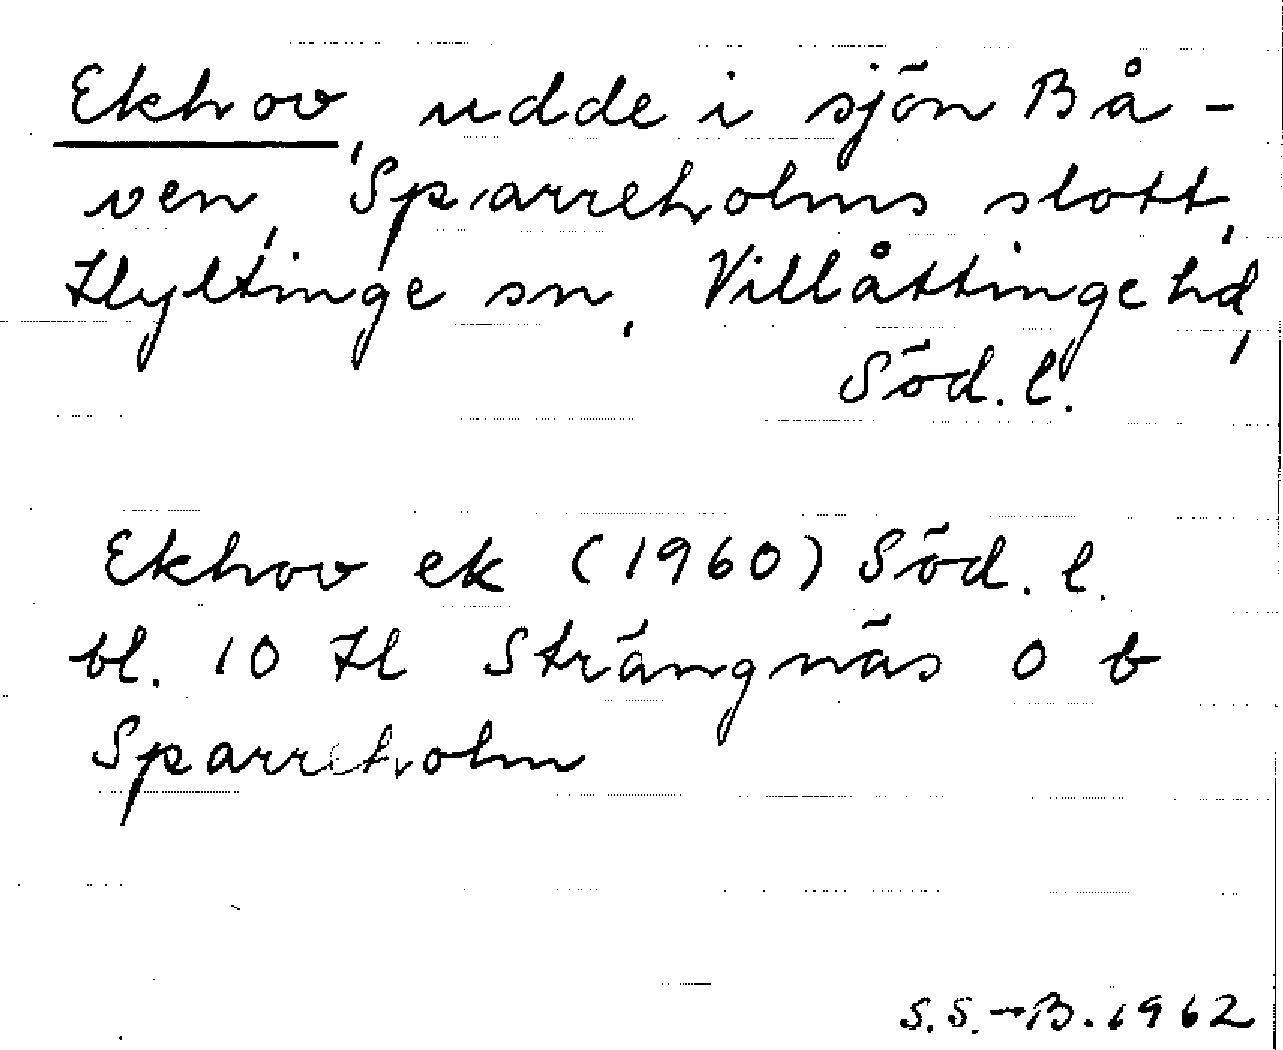 Ekhov, udde i sjön Bå-
ven, Sparreholms slott,
Hyltinge sn, Villåttinge hd,
Söd. l.
Ekhov ek (1960) Söd. l.
bl. 10 H Strängnäs O b
Sparreholm
S.S.-B. 1962